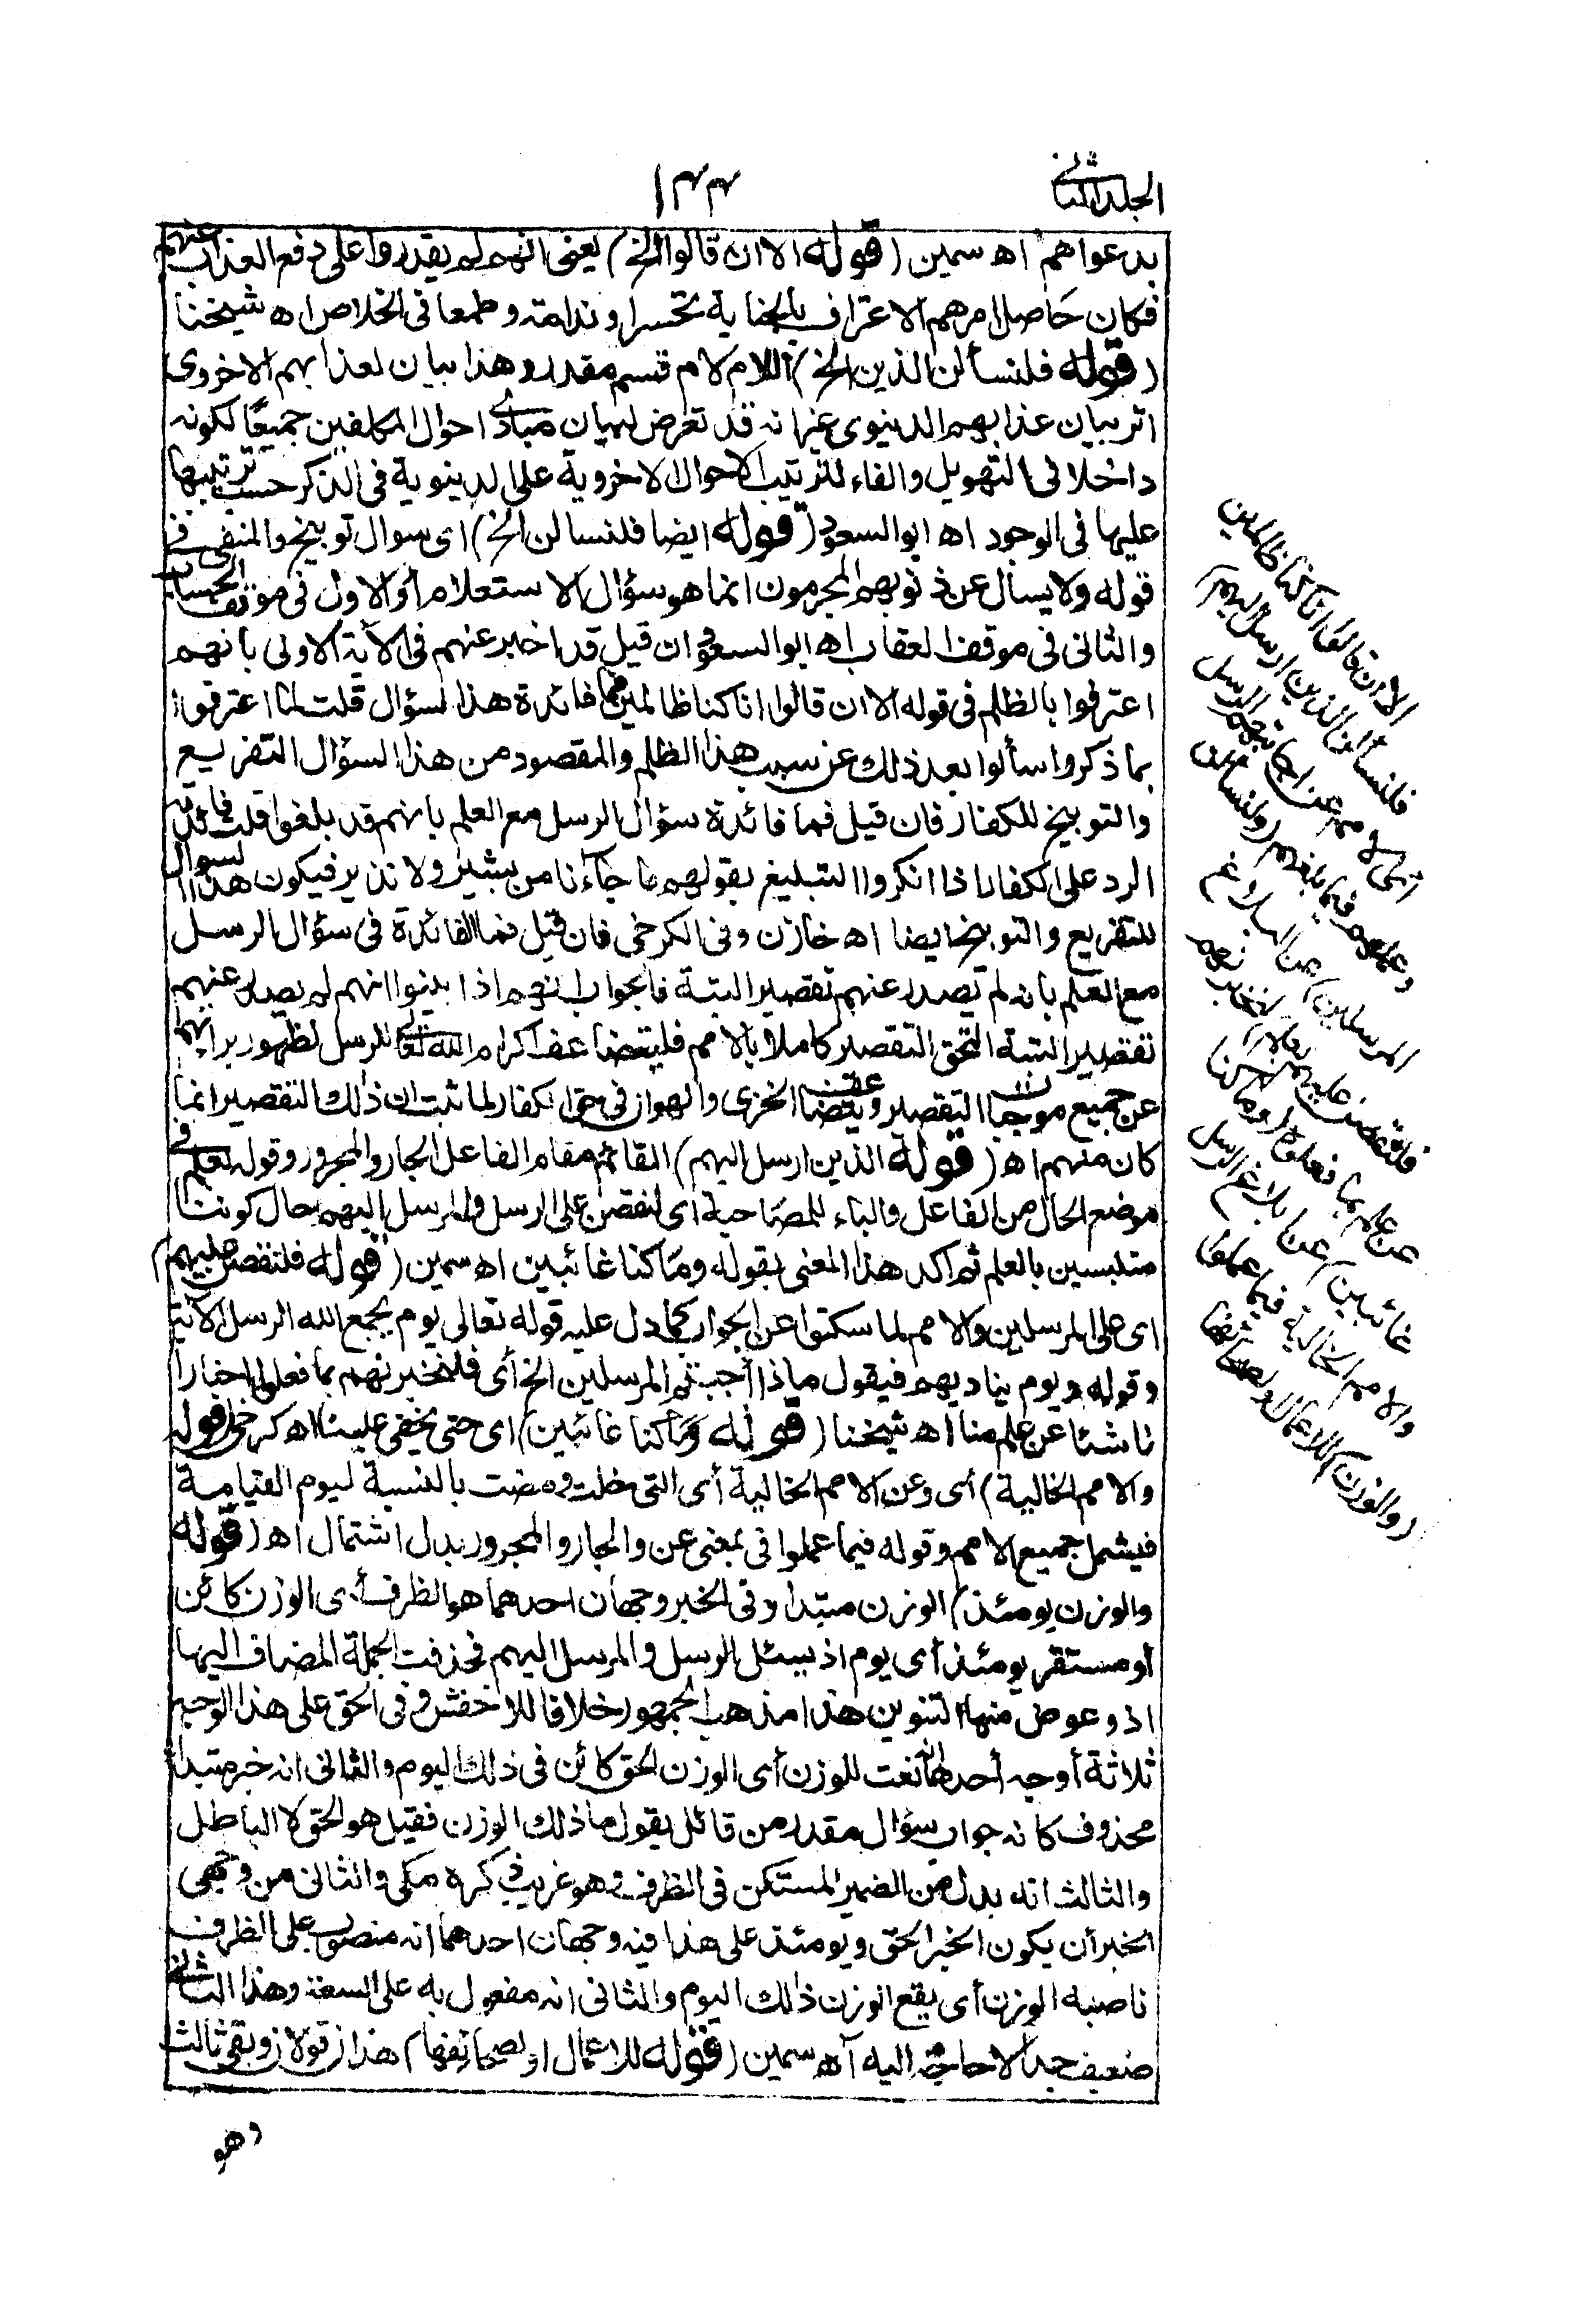 الجلد الثاني
١٣٣
بدعواهم اه سمين (قوله الا ان قالوا الخ) يعنى انهم لم يقدروا على دفع العذاب عنهم
فكان حاصل امرهم الاعتراف بالجناية تحسرا وندامة وطمعا فى الخلاص اه شيخنا
(قوله فلنسألن الذين الخ) اللام لام قسم مقدر وهذا بيان لعذابهم الاخروى
اثر بيان عذابهم الدنيوى غير انه قد تعرض لبيان مبادى احوال المكلفين جميعا لكونه
داخلا فى التهويل والفاء لترتيب الاحوال الاخروية على الدنيوية فى الذكر حسب ترتيبها
عليها فى الوجود اه ابو السعود (قوله ايضا فلنسالن الخ) اى سوال توبيخ والمنفى فى
قوله ولا يسأل عن ذنوبهم المجرمون انما هو سؤال الاستعلام أو الاول فى موقف الحساب
والثانى فى موقف العقاب اه ابو السعود ان قيل قد اخبر عنهم فى الآية الاولى بانهم
اعترفوا بالظلم فى قوله الا ان قالوا انا كنا ظالمين فما فائدة هذا السؤال قلت لما اعترفوا
بما ذكر واسألوا بعد ذلك عن سبب هذا الظلم والمقصود من هذا السؤال التقريع
والتوبيخ للكفار فان قيل فما فائدة سؤال الرسل مع العلم بانهم قد بلغوا قلت فائدته
الرد على الكفار اذا انكروا التبليغ بقولهم ما جآءنا من بشير ولا نذير فيكون هذا السوال
للتقريع والتوبيخ ايضا اه خازن وفى الكرخى فان قيل فما الفائدة فى سؤال الرسل
مع العلم بانه لم تصدر عنهم تقصير البتة فالجواب انهم اذا بينوا انهم لم يصدر عنهم
تقصير البتة التحق التقصير كاملا بالامم فليتضاعف اكرام الله تعالى للرسل لظهور براءتهم
عن جميع موجبات التقصير ويتضاعف الخزى والهوان فى حق الكفار لما ثبت ان ذلك التقصير انما
كان منهم اه (قوله الذين ارسل اليهم) القائم مقام الفاعل الجار والمجرور وقوله بعلم فى
موضع الحال من الفاعل والباء للمصاحبة اى لنقصن على الرسل والمرسل اليهم حال كوننا
متلبسين بالعلم ثم اكد هذا المعنى بقوله وما كنا غائبين اه سمين (قوله فلنقصن عليهم)
اى على المرسلين والامم لما سكتوا عن الجواب كما دل عليه قوله تعالى يوم يجمع الله الرسل الآية
وقوله ويوم يناديهم فيقول ماذا أجبتم المرسلين الخ أى فلنخبرنهم بما فعلوا اخبارا
ناشئا عن علم منا اه شيخنا (قوله وما كنا غائبين) اى حتى يخفى علينا اه كرخى (قوله
والامم الخالية) أى وعن الامم الخالية أى التى خلت ومضت بالنسبة ليوم القيامة
فيشمل جميع الامم وقوله فيما عملوا فى بمعنى عن والجار والمجرور بدل اشتمال اه (قوله
والوزن يومئذ) الوزن مبتدا وفى الخبر وجهان احدهما هو الظرف أى الوزن كائن
أو مستقر يومئذ أى يوم اذ يسئل الرسل والمرسل اليهم فحذفت الجملة المضاف اليها
اذ وعوض منها التنوين هذا مذهب الجمهور خلافا للاخفش وفى الحق على هذا الوجه
ثلاثة أوجه أحدها انه نعت للوزن أى الوزن الحق كائن فى ذلك اليوم والثانى انه خبر مبتدا
محذوف كانه جواب سؤال مقدر من قائل يقول ما ذلك الوزن فقيل هو الحق لا الباطل
والثالث انه بدل من الضمير المستكن فى الظرف وهو غريب ذكره مكى والثانى من وجهى
الخبر أن يكون الخبر الحق ويومئذ على هذا فيه وجهان احدهما انه منصوب على الظرف
ناصبه الوزن أى يقع الوزن ذلك اليوم والثانى انه مفعول به على السعة وهذا الثانى
ضعيف جدا لا حاجة اليه اه سمين (قوله للاعمال او لصحائفها) هذان قولان وبقى ثالث
وهو
الا ان قالوا انا كنا ظالمين
فلنسألن الذين ارسل اليهم)
اى الامم عن اجابتهم الرسل
وعملهم فيما بلغهم (ولنسألن
المرسلين) عن البلاغ
فلنقصن عليهم بعلم) لنخبرنهم
عن علم بما فعلوه (وما كنا
غائبين) عن ابلاغ الرسل
والامم الخالية فيما عملوا
(والوزن) للاعمال او لصحائفها